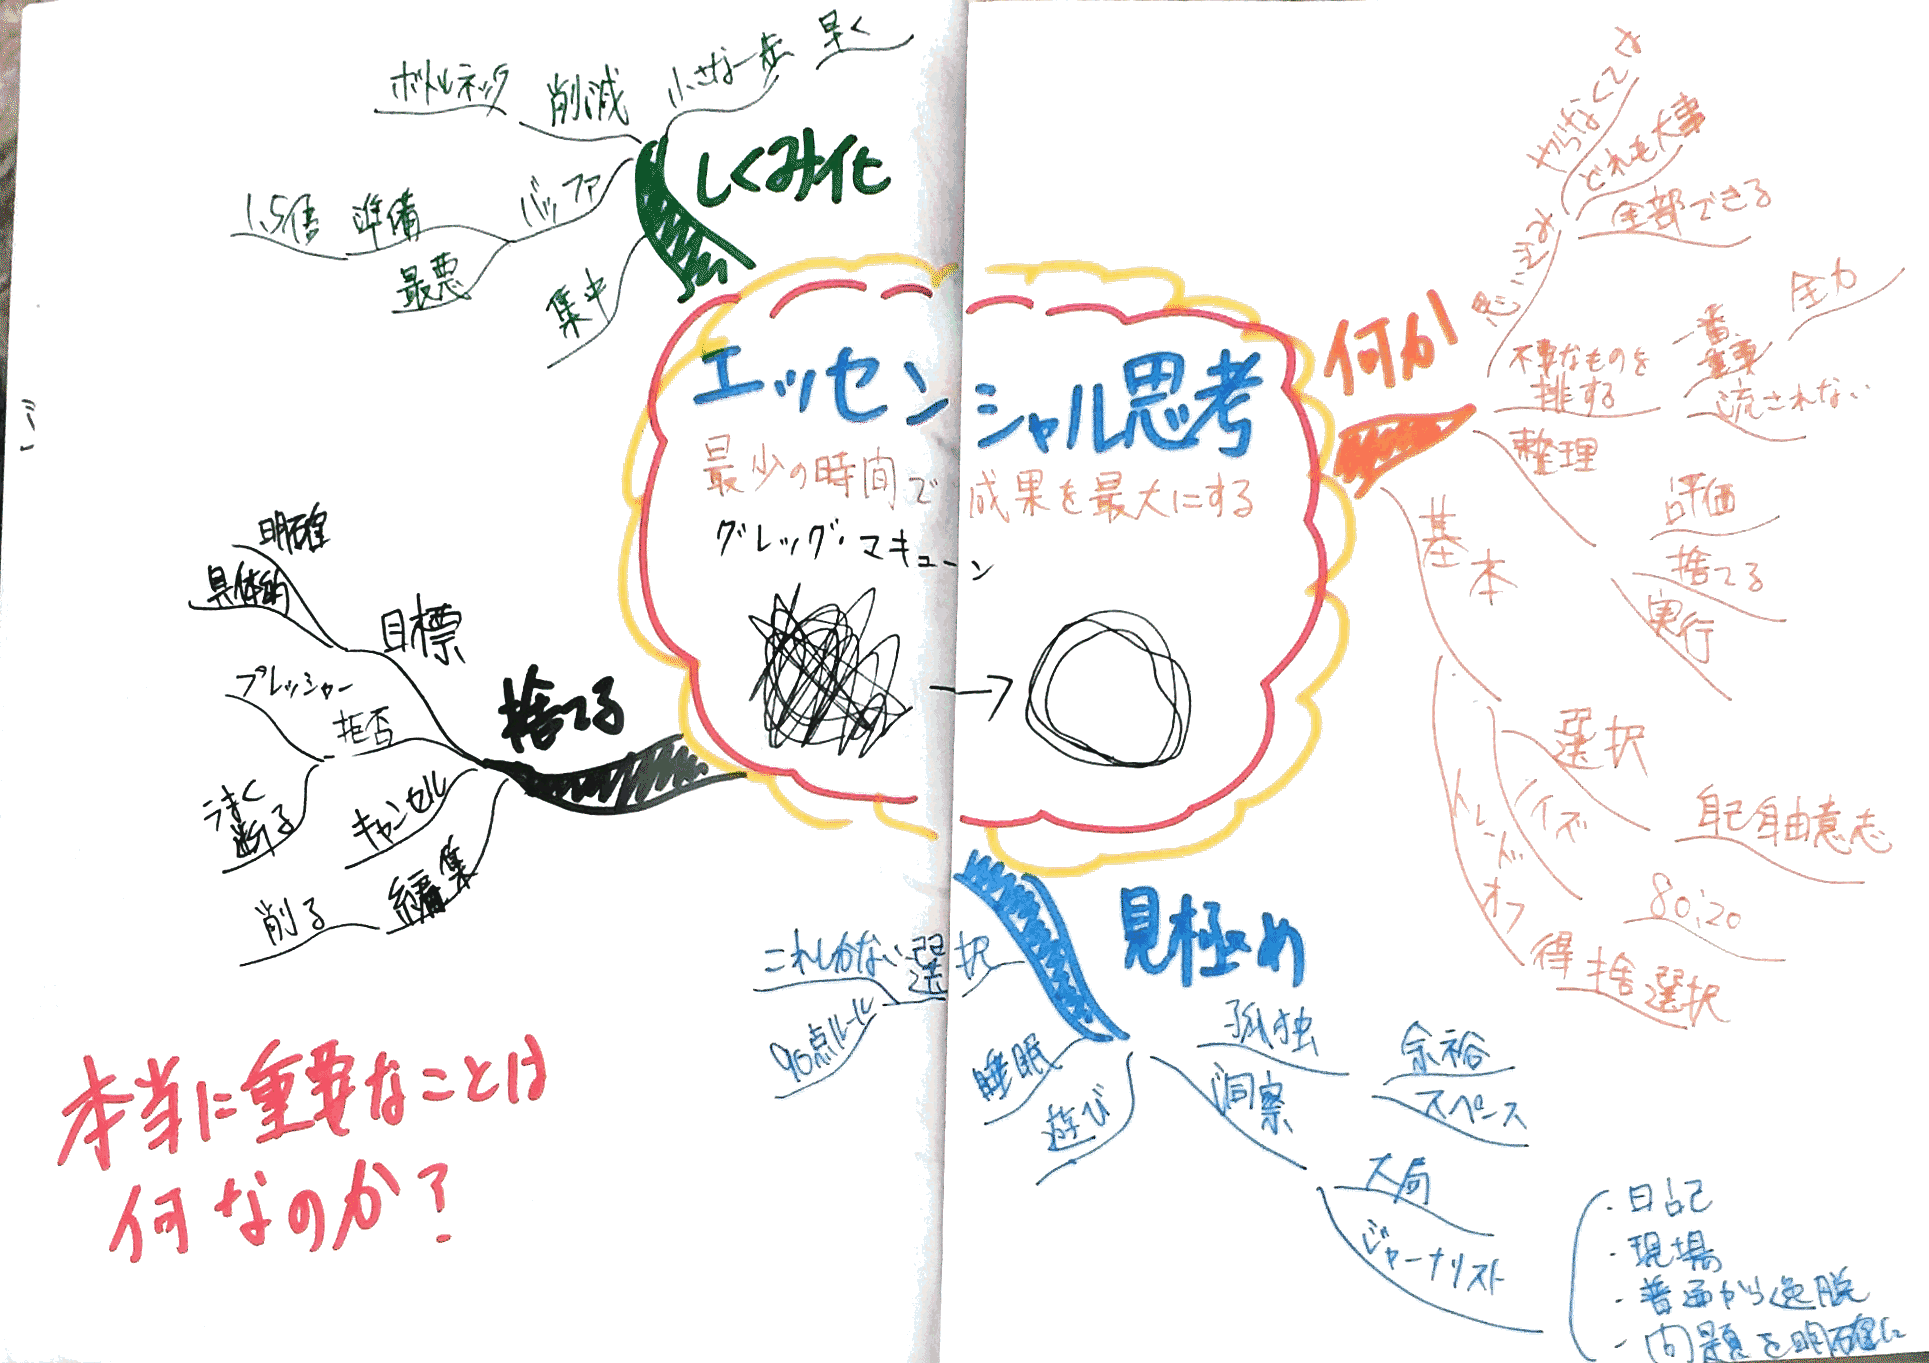 エッセンシャル思考
最少の時間で成果を最大にする
グレッグ・マキューン
何か
思い込み
やらなくてわ
どれも大事
全部できる
不要なものを
排する
一番
重要
全力
流されない
整理
評価
捨てる
実行
基本
選択
自己
自由意志
ノイズ
80:20
トレードオフ
得
捨
選択
見極め
孤独
余裕
スペース
洞察
大局
ジャーナリスト
・日記
・現場
・普通から逸脱
・問題を明確に
遊び
睡眠
選択
これしかない
90点ルール
捨てる
目標
明確
具体的
拒否
プレッシャー
うまく
断る
キャンセル
編集
削る
しくみ化
小さな一歩
早く
削減
ボトルネック
バッファ
準備
1.5倍
最悪
集中
本当に重要なことは
何なのか?